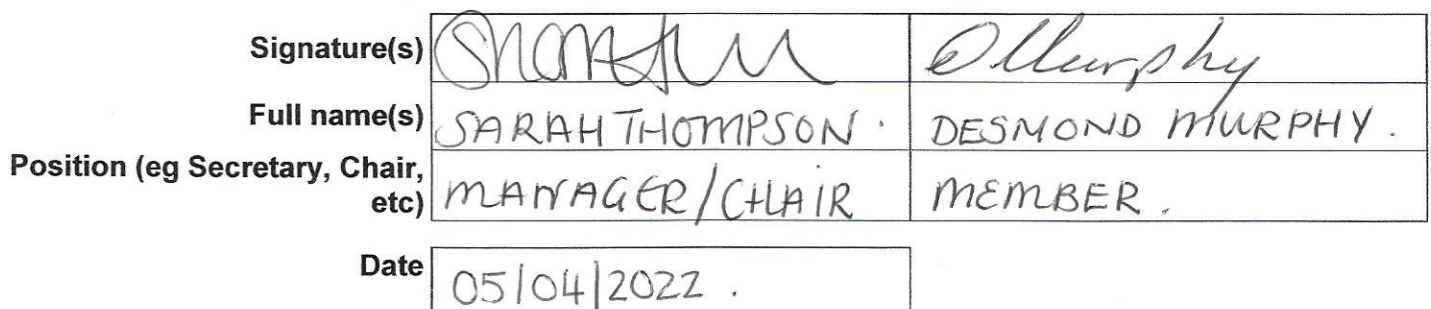 Signature(s) DMurphy
Full name(s) SARAH THOMPSON. DESMOND MURPHY.
Position (eg Secretary, Chair,
etc) MANAGER/CHAIR MEMBER.
Date 05/04/2022.